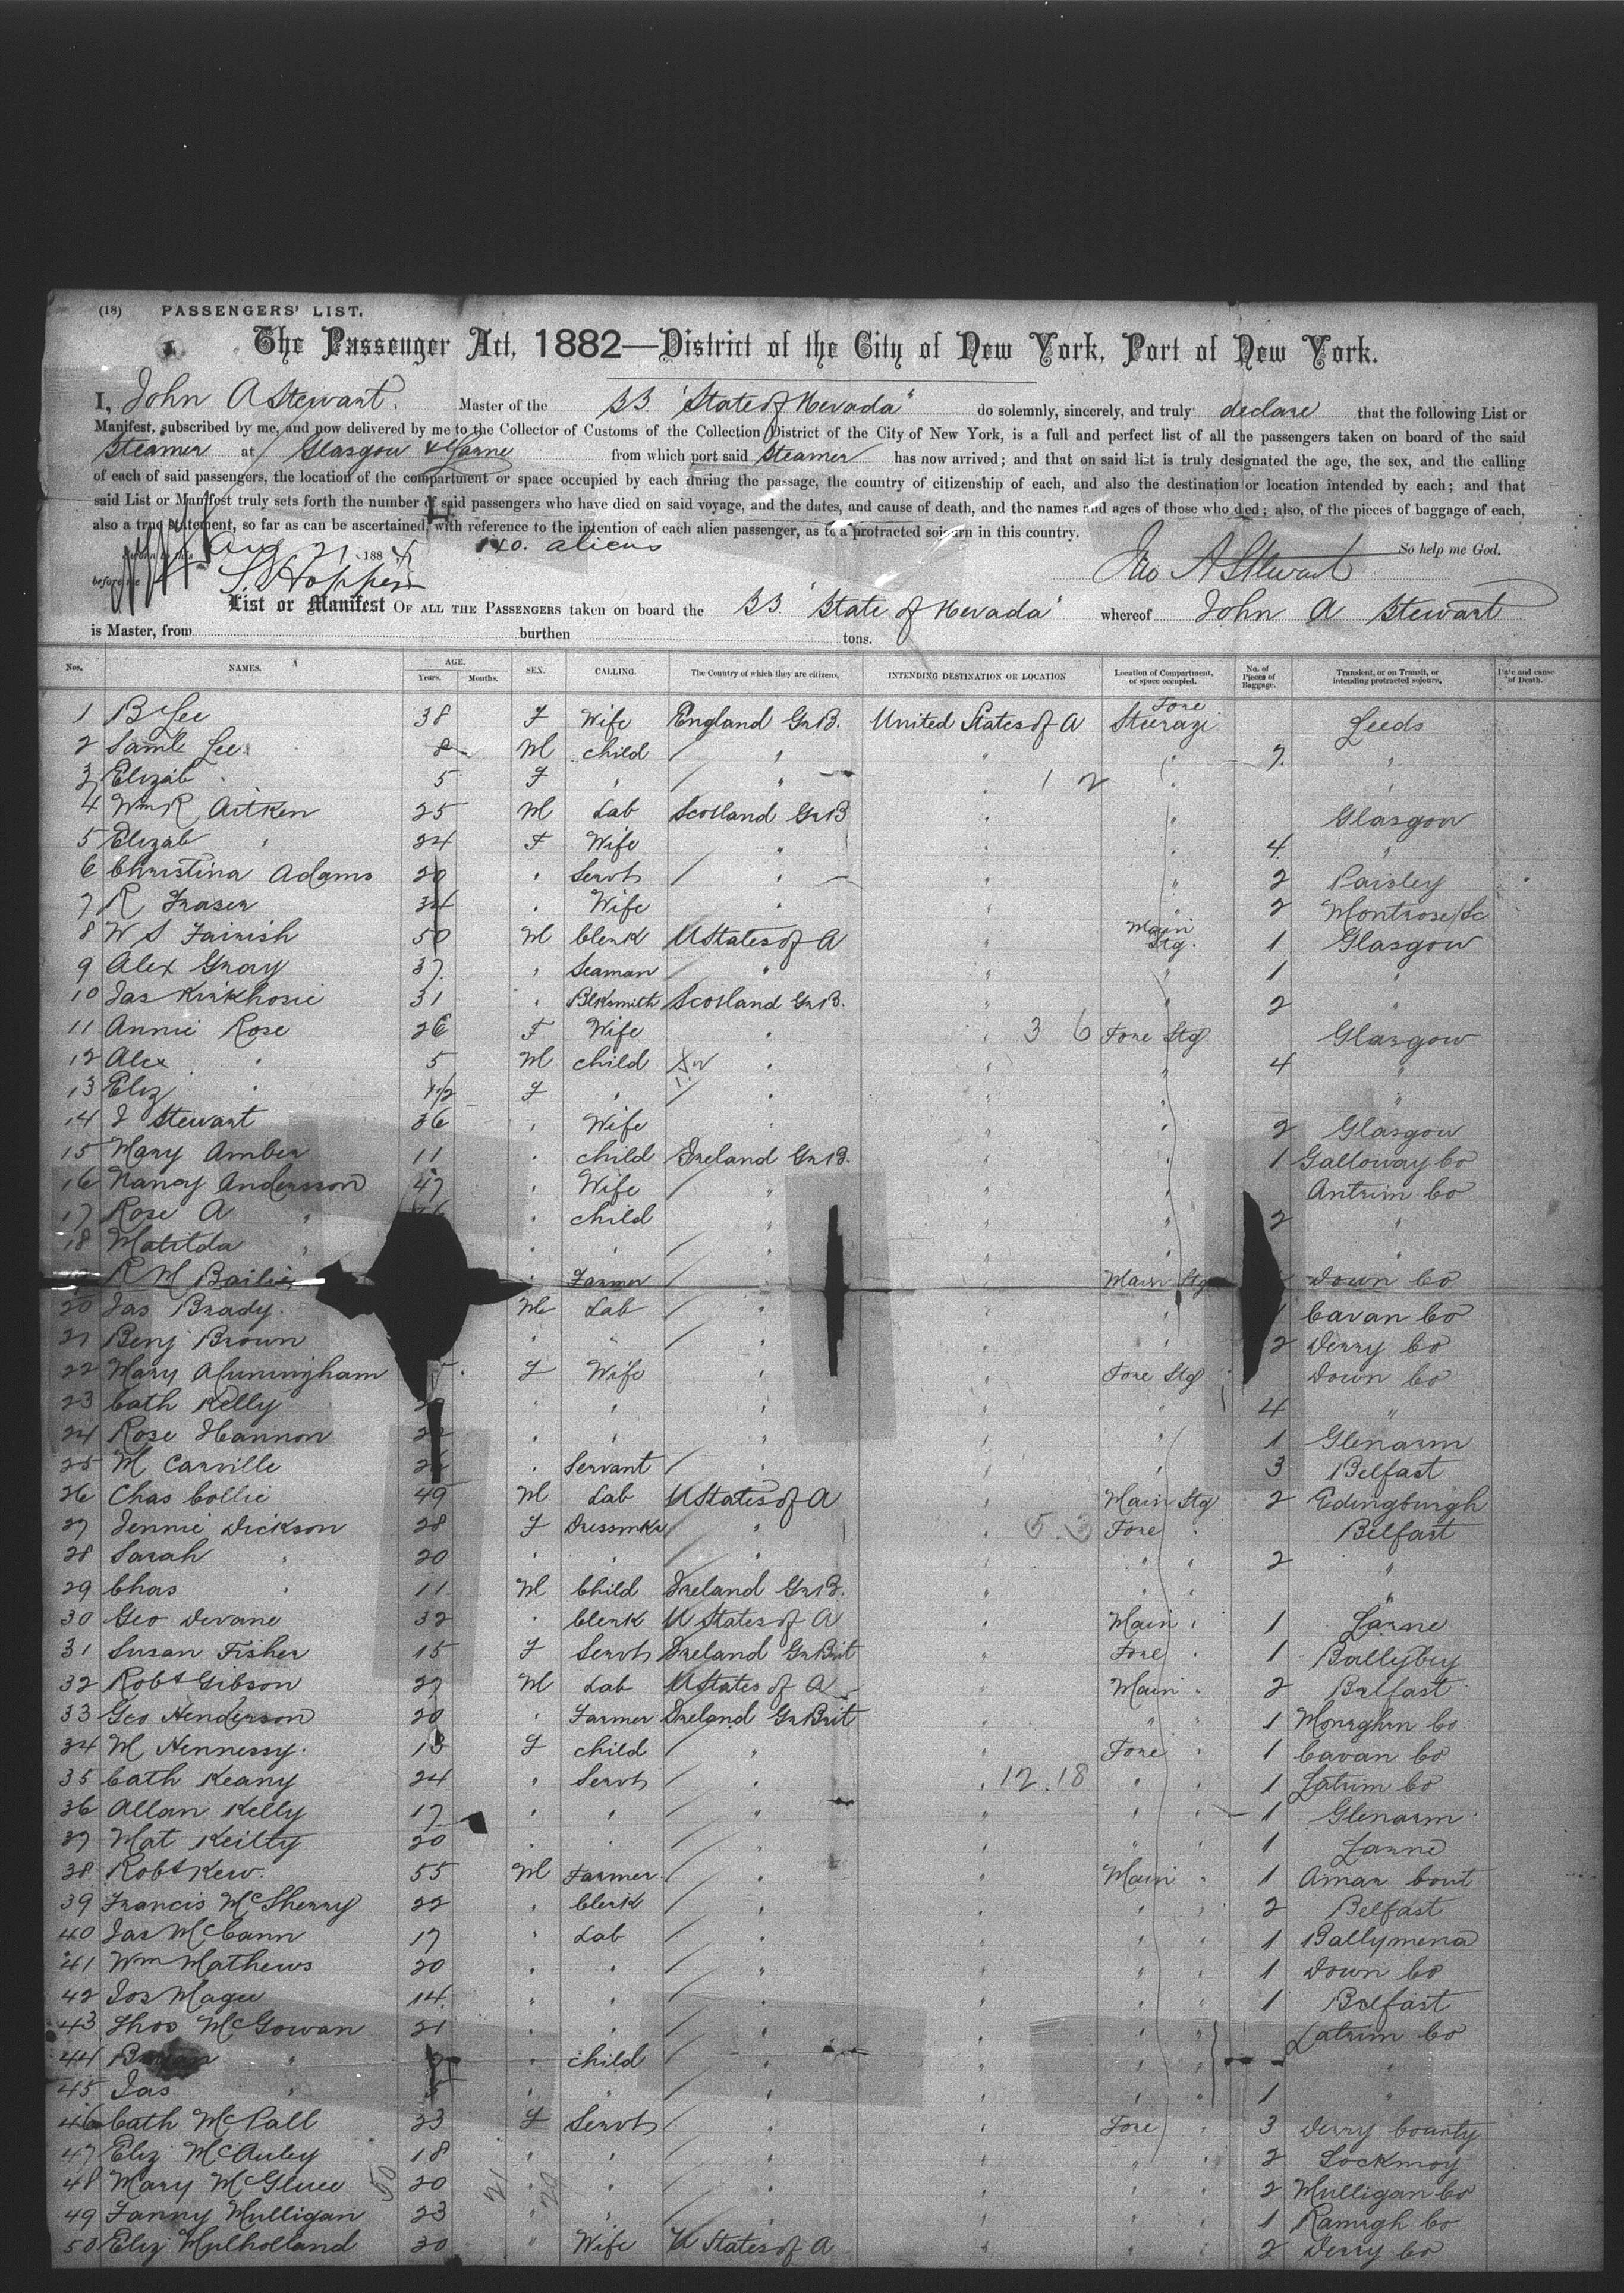 (18) PASSENGERS' LIST.
The Passenger Act, 1882—District of the City of New York, Port of New York.
I, John A Stewart. Master of the SS. "State of Nevada" do solemnly, sincerely, and truly declare that the following List or
Manifest, subscribed by me, and now delivered by me to the Collector of Customs of the Collection District of the City of New York, is a full and perfect list of all the passengers taken on board of the said
Steamer at Glasgow & Larne from which port said Steamer has now arrived; and that on said list is truly designated the age, the sex, and the calling
of each of said passengers, the location of the compartment or space occupied by each during the passage, the country of citizenship of each, and also the destination or location intended by each; and that
said List or Manifest truly sets forth the number of said passengers who have died on said voyage, and the dates, and cause of death, and the names and ages of those who died; also, of the pieces of baggage of each,
also a true statement, so far as can be ascertained, with reference to the intention of each alien passenger, as to a protracted sojourn in this country.
Sworn to this Aug 21 188 140. aliens So help me God.
before me Jno A Stewart
List or Manifest OF ALL THE PASSENGERS taken on board the SS. "State of Nevada" whereof John A Stewart
is Master, from burthen tons.
Nos. NAMES. AGE. Years. Months. SEX. CALLING. The Country of which they are citizens. INTENDING DESTINATION OR LOCATION Location of Compartment, or space occupied. No. of Pieces of Baggage. Transient, or on Transit, or intending protracted sojourn. Date and cause of Death.
1 B Lee 38 F Wife England Gr B. United States of A Fore Steerage Leeds
2 Saml Lee 8 M child " " " 7. "
3 Elizab " 5 F " " " 1 2 "
4 Wm R Aitken 25 M Lab Scotland Gr B " " Glasgow
5 Elizab " 24 F Wife " " " 4. "
6 Christina Adams 20 " Servt " " " 2 Paisley
7 R Fraser 34 " Wife " " " 2 Montrose/Sc
8 W S Fairish 50 M Clerk U States of A " Main Stg. 1 Glasgow
9 Alex Gray 37 " Seaman " " " 1 "
10 Jas Kirkhosie 31 " Blksmith Scotland Gr B. " " 2 "
11 Annie Rose 26 F Wife " " 3 6 Fore Stg Glasgow
12 Alex " 5 M child " " " 4 "
13 Eliz " F " " " " "
14 J Stewart 36 " Wife " " " 2 Glasgow
15 Mary Amber 11 " child Ireland Gr B. " " 1 Galloway Co
16 Nancy Andersson 47 " Wife " " " Antrim Co
17 Rose A " " child " " " 2 "
18 Matilda " " " " " " "
R M Bailie " Farmer " " Main Stg Down Co
20 Jas Brady. M Lab " " " 1 Cavan Co
21 Benj Brown " " " " " 2 Derry Co
22 Mary A Cunningham F Wife " " Fore Stg Down Co
23 Cath Kelly " " " " " 4 "
24 Rose Hannon " " " " " 1 Glenarm
25 M Carville " Servant " " " 3 Belfast
26 Chas Collie 49 M Lab U States of A " Main Stg 2 Edingburgh
27 Jennie Dickson 28 F Dressmkr " " 5. 3 Fore " Belfast
28 Sarah " 20 " " " " " " 2 "
29 Chas " 11 M Child Ireland Gr B. " " " "
30 Geo Devane 32 " Clerk U States of A " Main " 1 Larne
31 Susan Fisher 15 F Servt Ireland Gr Brit " Fore " 1 Ballybey
32 Robt Gibson 27 M Lab U States of A " Main " 2 Belfast
33 Geo Henderson 20 " Farmer Ireland Gr Brit " " " 1 Monaghan Co.
34 M Hennessy. F child " " Fore " 1 Cavan Co
35 Cath Keany 24 " Servt " " 12. 18 " " 1 Latrim Co
36 Allan Kelly 17 " " " " " " 1 Glenarm
37 Mat Keilty 20 " " " " " " 1 Larne
38 Robt Kew. 55 M Farmer " " Main " 1
39 Francis McSherry 22 " Clerk " " " " 2 Belfast
40 Jas McCann 17 " Lab " " " " 1 Ballymena
41 Wm Mathews 20 " " " " " " 1 Down Co
42 Jos Magee 14. " " " " " " 1 Belfast
43 Thos McGowan 21 " " " " " " Latrim Co
44 " " child " " " " "
45 Jas " " " " " " " 1 "
46 Cath McCall 23 F Servt " " Fore " 3 Derry County
47 Eliz McAuley 18 " " " " " " 2 Lockmoy
48 Mary McGlue 20 " " " " " " 2 Mulligan Co
49 Fanny Mulligan 23 " " " " " " 1
50 Eliz Mulholland 30 " Wife U States of A " " " 2 Derry Co
50 21 20